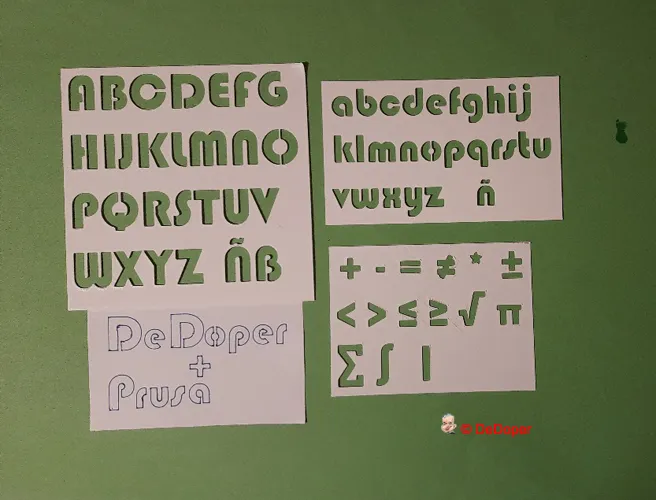 ABCDEFG
HIJKLMNO
PQRSTUV
WXYZ ÑB
abcdefghij
klmnopqrstu
vwxyz ñ
+ - = ≠ * ±
< > ≤ ≥ √ π
∑ ∫ |
DeDoper
+
Prusa
© DeDoper